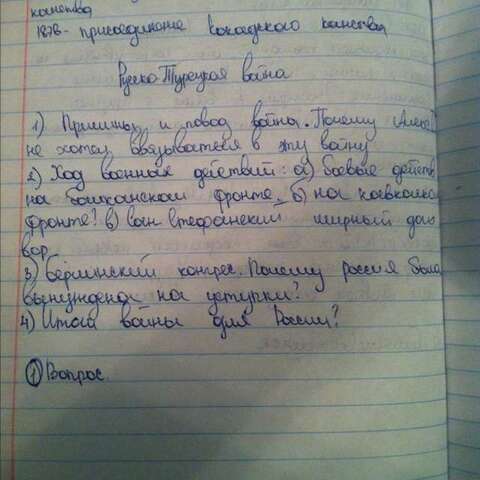 ханства
1876 - присоединение кокандского ханства
Русско Турецкая война
1) Причины и повод войны. Почему Алекс
не хотел ввязываться в эту войну
2) Ход военных действий: а) боевые действ
на балканском фронте. б) на кавказком
фронте? в) сан стефанский мирный дого
вор.
3) Берлинский конгрес. Почему россия была
вынуждена на уступки?
4) Итоги войны для России?
1 Вопрос.